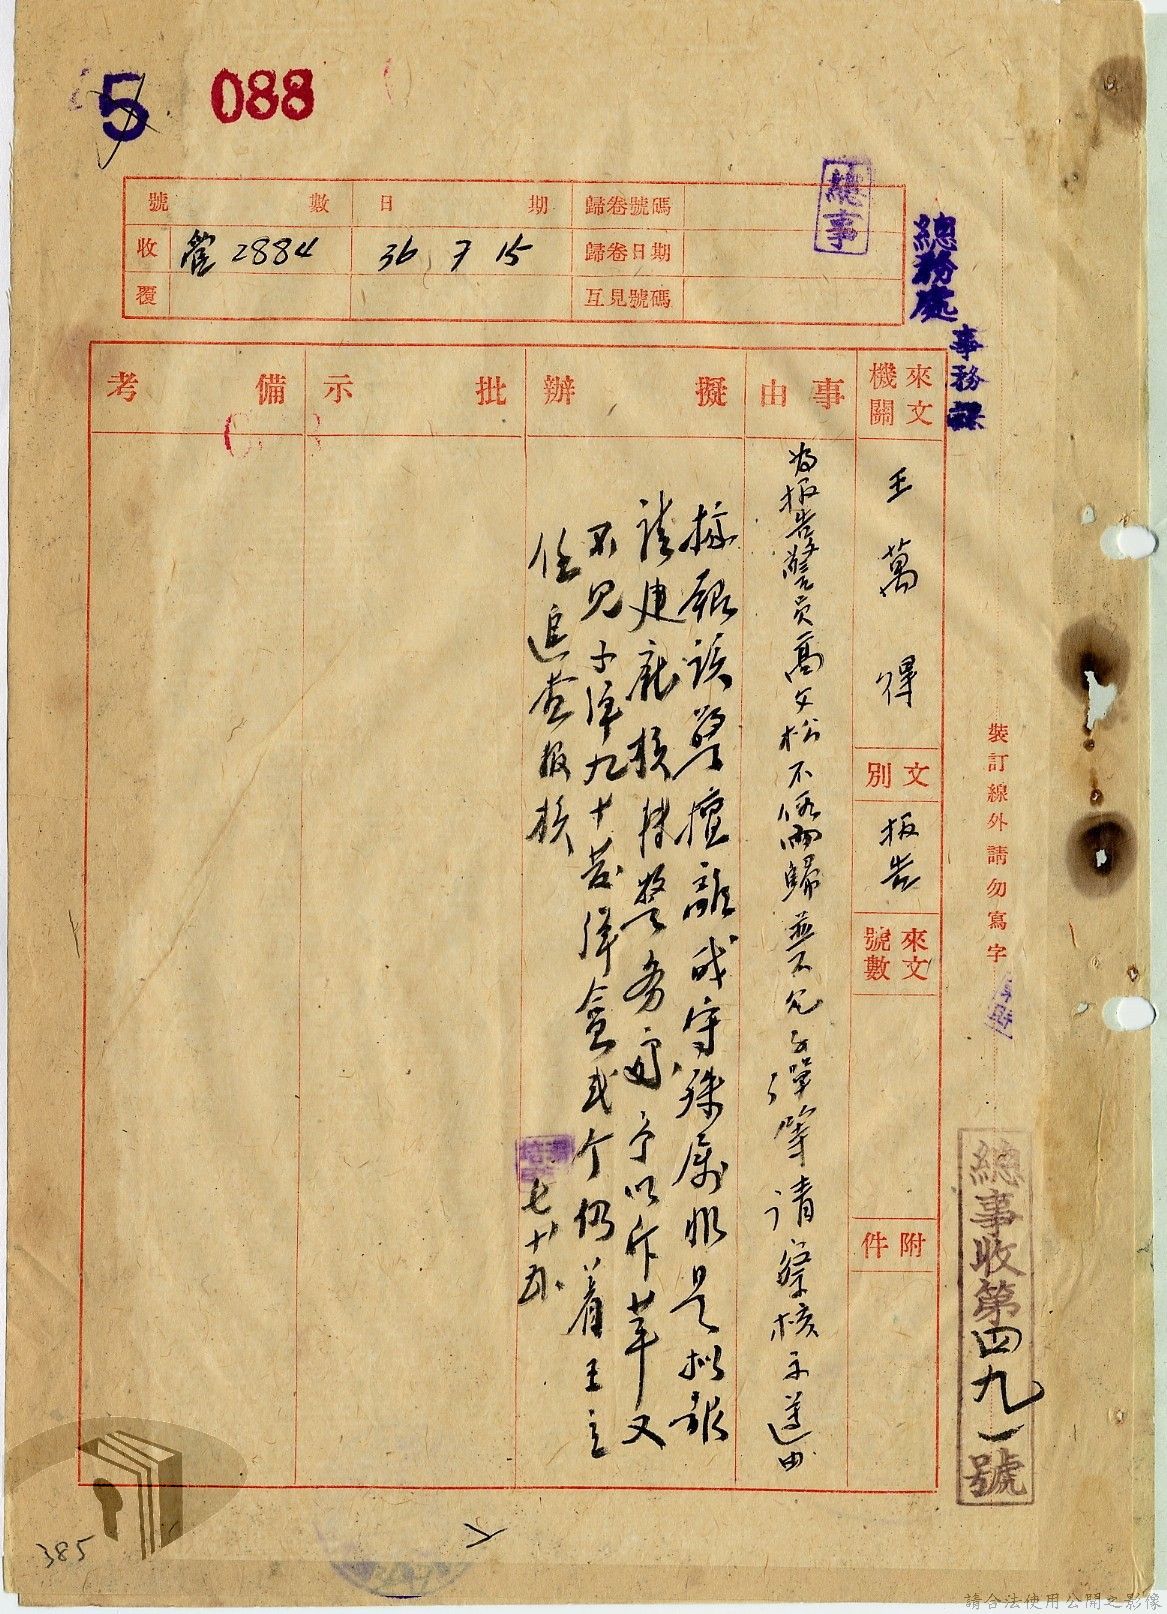 5 088
總事
總務處
事務課
號數 日期 歸卷號碼
收 管2884 36 7 15 歸卷日期
覆 互見號碼
來文機關
王萬得
文別
报告
來文號數
附件
事由
為报告警員高文松不假而歸並不見子彈等請察核示遵由
擬辦
據報該警擅離職守殊屬非是拟報
請建龍核轉警务處予以斥革又
不見子彈九十發彈盒弍个仍着王主
任追查报核
七十五
批示
備考
裝訂線外請勿寫字
總事收第四九一號
385
請合法使用公開之影像